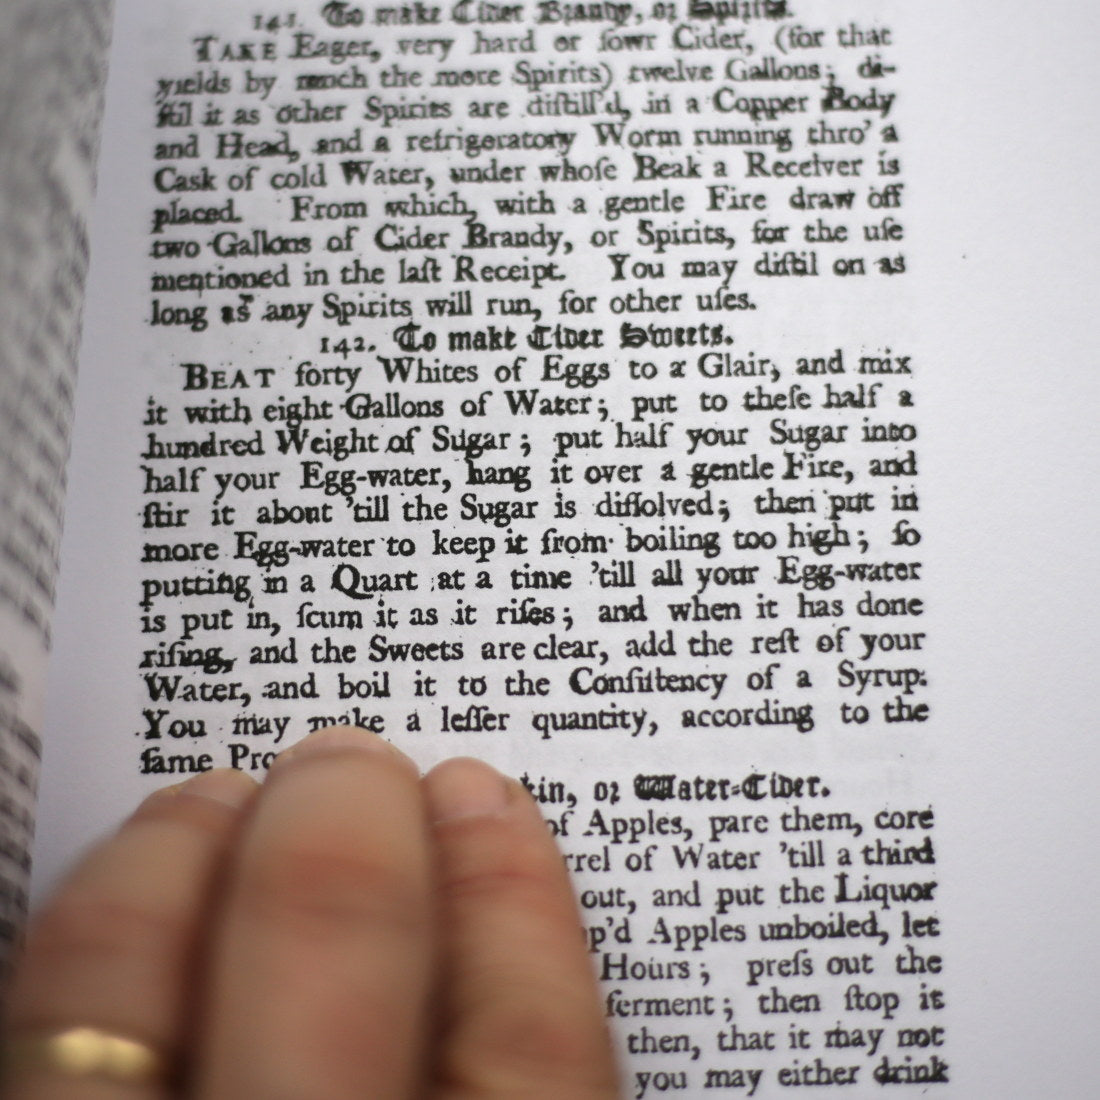 141. To make Cider Brandy, or Spirits.
TAKE Eager, very hard or ſowr Cider, (for that
yields by much the more Spirits) twelve Gallons; di-
ſtil it as other Spirits are diſtill'd, in a Copper Body
and Head, and a refrigeratory Worm running thro' a
Cask of cold Water, under whoſe Beak a Receiver is
placed. From which, with a gentle Fire draw off
two Gallons of Cider Brandy, or Spirits, for the uſe
mentioned in the laſt Receipt. You may diſtil on as
long as any Spirits will run, for other uſes.
142. To make Cider Sweets.
BEAT forty Whites of Eggs to a Glair, and mix
it with eight Gallons of Water; put to theſe half a
hundred Weight of Sugar; put half your Sugar into
half your Egg-water, hang it over a gentle Fire, and
ſtir it about 'till the Sugar is diſſolved; then put in
more Egg-water to keep it from boiling too high; ſo
putting in a Quart at a time 'till all your Egg-water
is put in, ſcum it as it riſes; and when it has done
riſing, and the Sweets are clear, add the reſt of your
Water, and boil it to the Conſiſtency of a Syrup.
You may make a leſſer quantity, according to the
ſame Pro
kin, or Water-Cider.
of Apples, pare them, core
rrel of Water 'till a third
out, and put the Liquor
p'd Apples unboiled, let
Hours; preſs out the
ferment; then ſtop it
then, that it may not
you may either drink